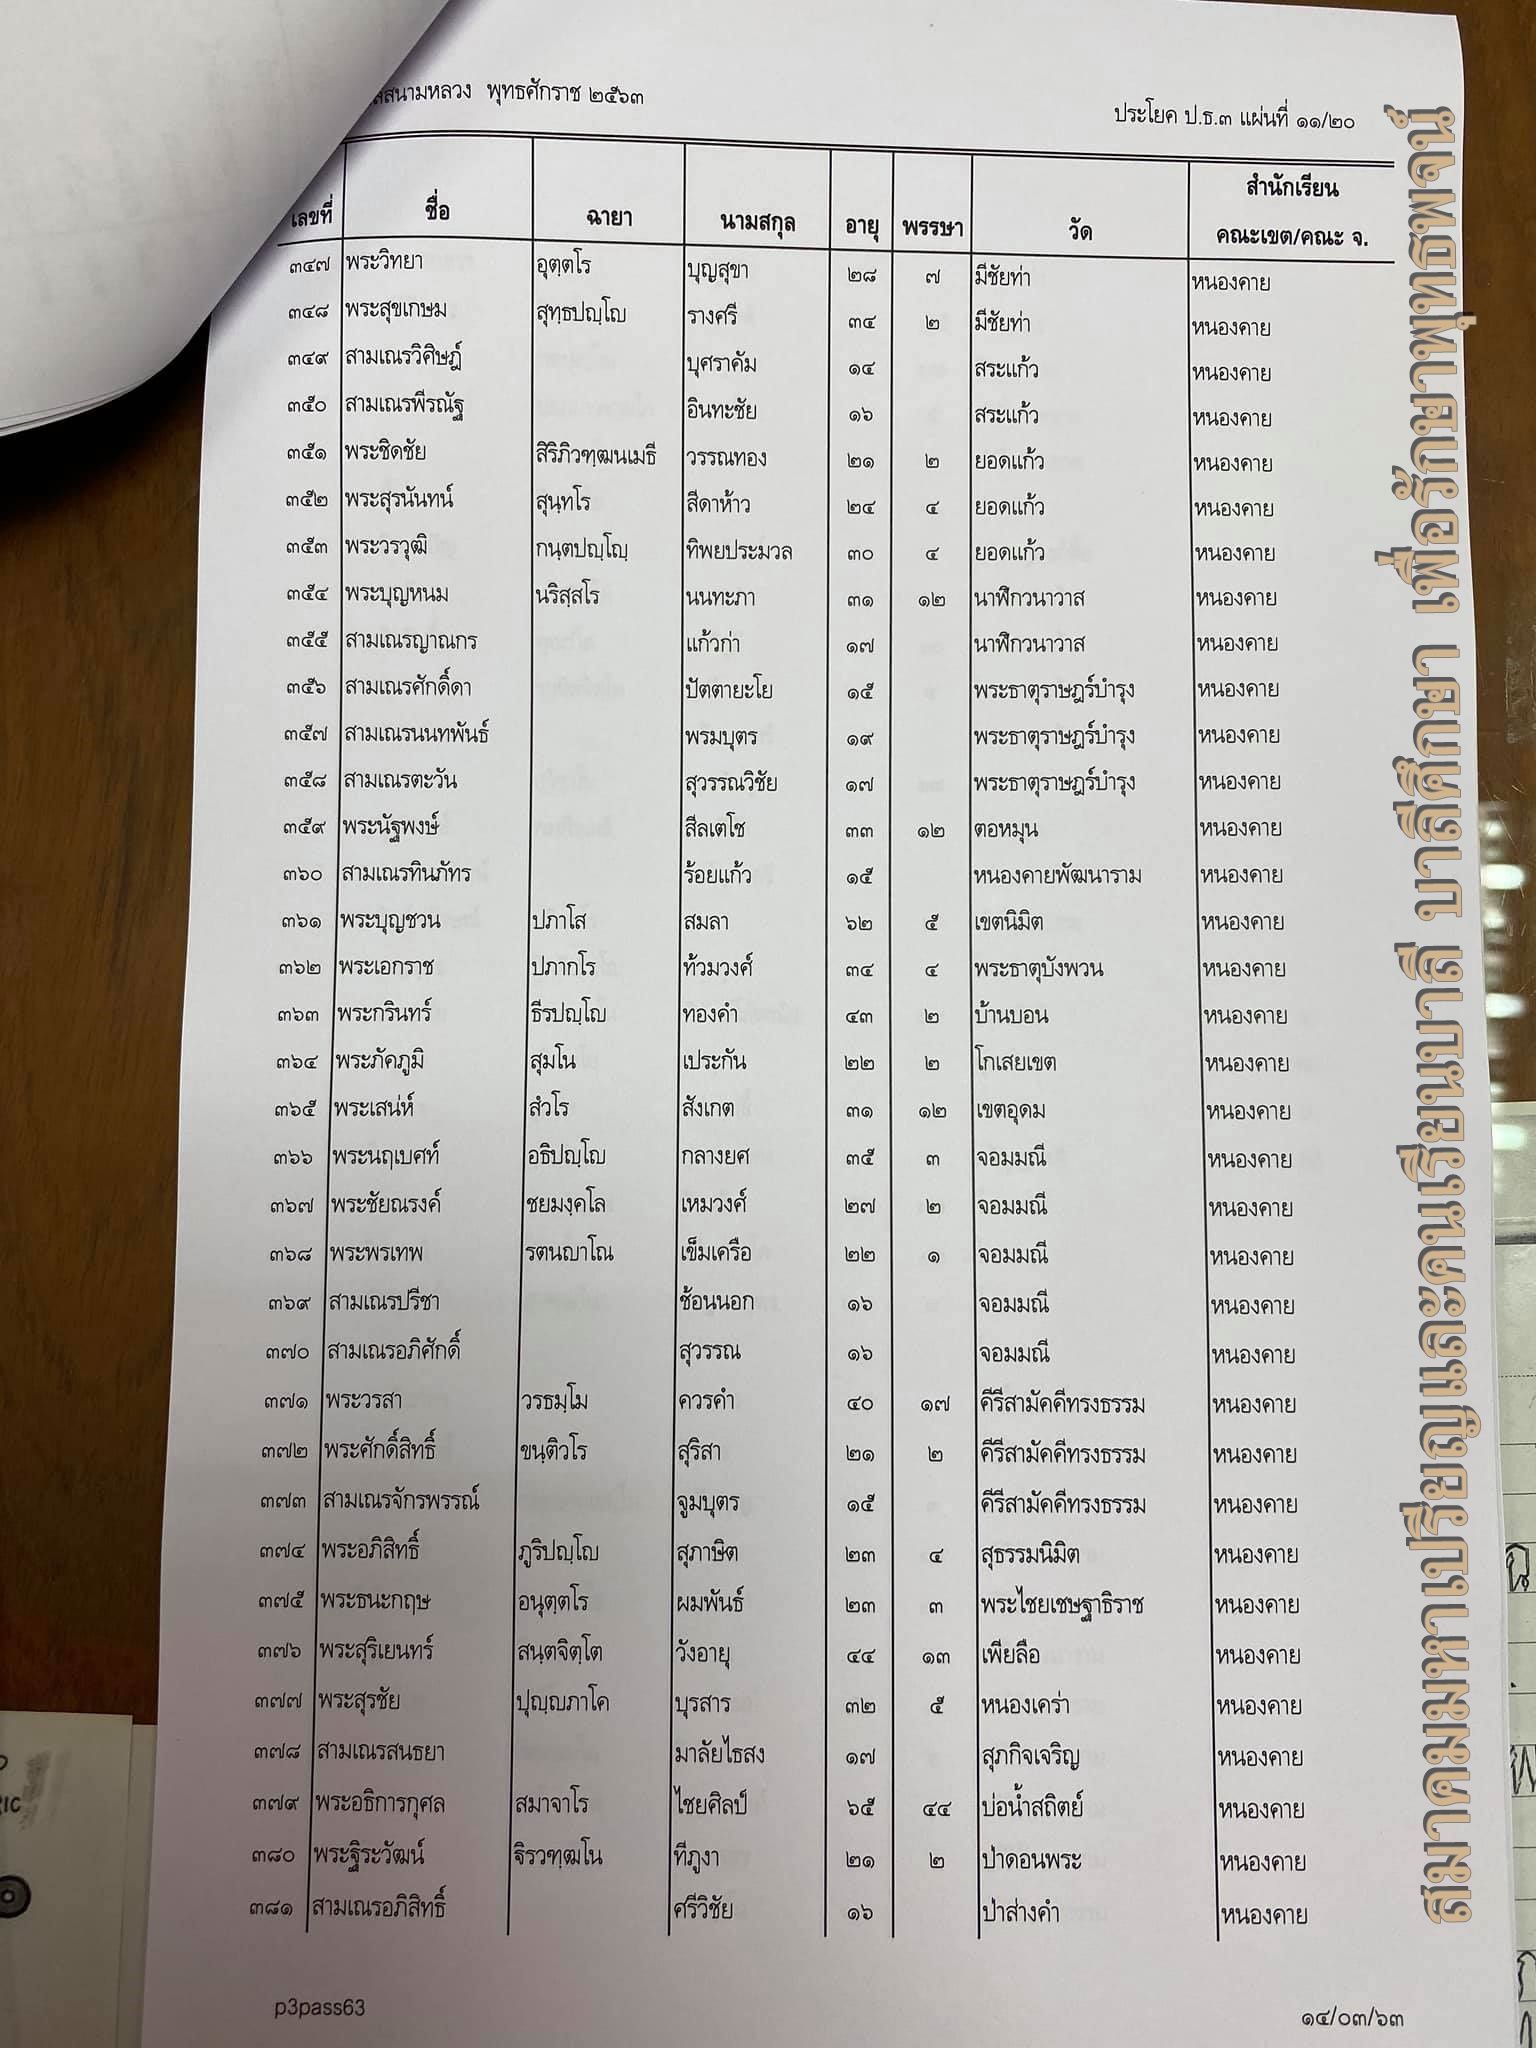 สนามหลวง พุทธศักราช ๒๕๖๓
ประโยค ป.ธ.๓ แผ่นที่ ๑๑/๒๐
เลขที่ ชื่อ ฉายา นามสกุล อายุ พรรษา วัด สำนักเรียน
คณะเขต/คณะ จ.
๓๔๗ พระวิทยา อุตฺตโร บุญสุขา ๒๘ ๗ มีชัยท่า หนองคาย
๓๔๘ พระสุขเกษม สุทฺธปญฺโญ รางศรี ๓๔ ๒ มีชัยท่า หนองคาย
๓๔๙ สามเณรวิศิษฎ์ บุศราคัม ๑๔ สระแก้ว หนองคาย
๓๕๐ สามเณรพีรณัฐ อินทะชัย ๑๖ สระแก้ว หนองคาย
๓๕๑ พระชิดชัย สิริภิวฑฺฒนเมธี วรรณทอง ๒๑ ๒ ยอดแก้ว หนองคาย
๓๕๒ พระสุรนันทน์ สุนฺทโร สีดาห้าว ๒๔ ๔ ยอดแก้ว หนองคาย
๓๕๓ พระวรวุฒิ กนฺตปญฺโญฺ ทิพยประมวล ๓๐ ๔ ยอดแก้ว หนองคาย
๓๕๔ พระบุญหนม นริสฺสโร นนทะภา ๓๑ ๑๒ นาฬิกวนาวาส หนองคาย
๓๕๕ สามเณรญาณกร แก้วก่า ๑๗ นาฬิกวนาวาส หนองคาย
๓๕๖ สามเณรศักดิ์ดา ปัตตายะโย ๑๕ พระธาตุราษฎร์บำรุง หนองคาย
๓๕๗ สามเณรนนทพันธ์ พรมบุตร ๑๙ พระธาตุราษฎร์บำรุง หนองคาย
๓๕๘ สามเณรตะวัน สุวรรณวิชัย ๑๗ พระธาตุราษฎร์บำรุง หนองคาย
๓๕๙ พระนัฐพงษ์ สีลเตโช ๓๓ ๑๒ ตอหมุน หนองคาย
๓๖๐ สามเณรทินภัทร ร้อยแก้ว ๑๕ หนองคายพัฒนาราม หนองคาย
๓๖๑ พระบุญชวน ปภาโส สมลา ๖๒ ๕ เขตนิมิต หนองคาย
๓๖๒ พระเอกราช ปภากโร ท้วมวงศ์ ๓๔ ๔ พระธาตุบังพวน หนองคาย
๓๖๓ พระกรินทร์ ธีรปญฺโญ ทองคำ ๔๓ ๒ บ้านบอน หนองคาย
๓๖๔ พระภัคภูมิ สุมโน เประกัน ๒๒ ๒ โกเสยเขต หนองคาย
๓๖๕ พระเสน่ห์ สํวโร สังเกต ๓๑ ๑๒ เขตอุดม หนองคาย
๓๖๖ พระนฤเบศท์ อธิปญฺโญ กลางยศ ๓๕ ๓ จอมมณี หนองคาย
๓๖๗ พระชัยณรงค์ ชยมงฺคโล เหมวงศ์ ๒๗ ๒ จอมมณี หนองคาย
๓๖๘ พระพรเทพ รตนญาโณ เข็มเครือ ๒๒ ๑ จอมมณี หนองคาย
๓๖๙ สามเณรปรีชา ช้อนนอก ๑๖ จอมมณี หนองคาย
๓๗๐ สามเณรอภิศักดิ์ สุวรรณ ๑๖ จอมมณี หนองคาย
๓๗๑ พระวรสา วรธมฺโม ควรคำ ๔๐ ๑๗ คีรีสามัคคีทรงธรรม หนองคาย
๓๗๒ พระศักดิ์สิทธิ์ ขนฺติวโร สุริสา ๒๑ ๒ คีรีสามัคคีทรงธรรม หนองคาย
๓๗๓ สามเณรจักรพรรณ์ จูมบุตร ๑๕ คีรีสามัคคีทรงธรรม หนองคาย
๓๗๔ พระอภิสิทธิ์ ภูริปญฺโญ สุภาษิต ๒๓ ๔ สุธรรมนิมิต หนองคาย
๓๗๕ พระธนะกฤษ อนุตฺตโร ผมพันธ์ ๒๓ ๓ พระไชยเชษฐาธิราช หนองคาย
๓๗๖ พระสุริเยนทร์ สนฺตจิตฺโต วังอายุ ๔๔ ๑๓ เพียลือ หนองคาย
๓๗๗ พระสุรชัย ปุญฺญภาโค บุรสาร ๓๒ ๕ หนองเคร่า หนองคาย
๓๗๘ สามเณรสนธยา มาลัยไธสง ๑๗ สุภกิจเจริญ หนองคาย
๓๗๙ พระอธิการกุศล สมาจาโร ไชยศิลป์ ๖๕ ๔๔ บ่อน้ำสถิตย์ หนองคาย
๓๘๐ พระฐิระวัฒน์ จิรวฑฺฒโน ทีภูงา ๒๑ ๒ ป่าดอนพระ หนองคาย
๓๘๑ สามเณรอภิสิทธิ์ ศรีวิชัย ๑๖ ป่าส่างคำ หนองคาย
p3pass63
๑๔/๐๓/๖๓
สมาคมมหาเปรียญและคนเรียนบาลี บาลีศึกษา เพื่อรักษาพุทธพจน์